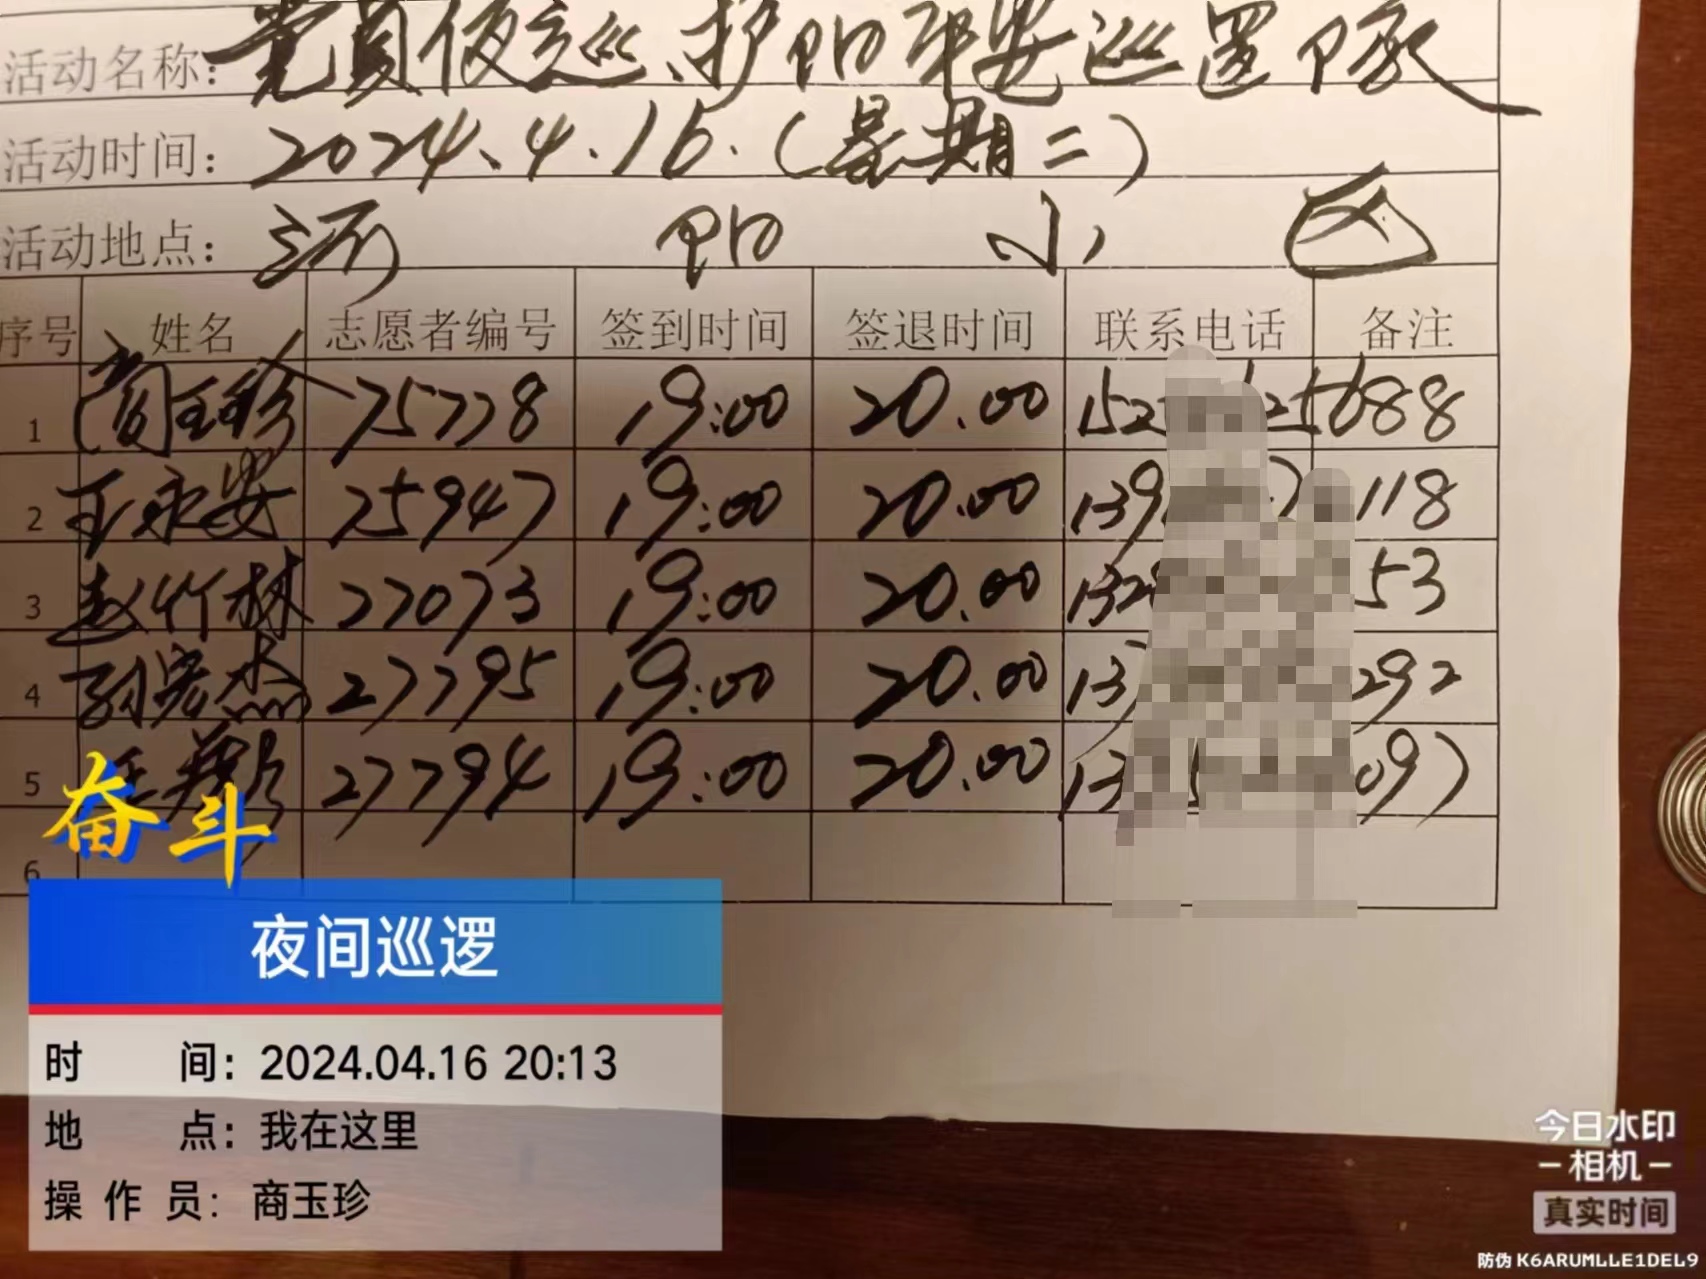 活动名称：党员夜巡、护阳平安巡逻队
活动时间：2024.4.16.（星期二）
活动地点：河阳小区
序号 姓名 志愿者编号 签到时间 签退时间 联系电话 备注
1 商玉珍 75778 19:00 20.00 152 25688
2 王永安 75947 19:00 20.00 139 118
3 赵竹林 27073 19:00 20.00 132 53
4 孙宏杰 27795 19:00 20.00 13 292
5 27794 19:00 20.00 13 097
6
奋斗
夜间巡逻
时 间：2024.04.16 20:13
地 点：我在这里
操作员：商玉珍
今日水印
-相机-
真实时间
防伪 K6ARUMLLE1DEL9